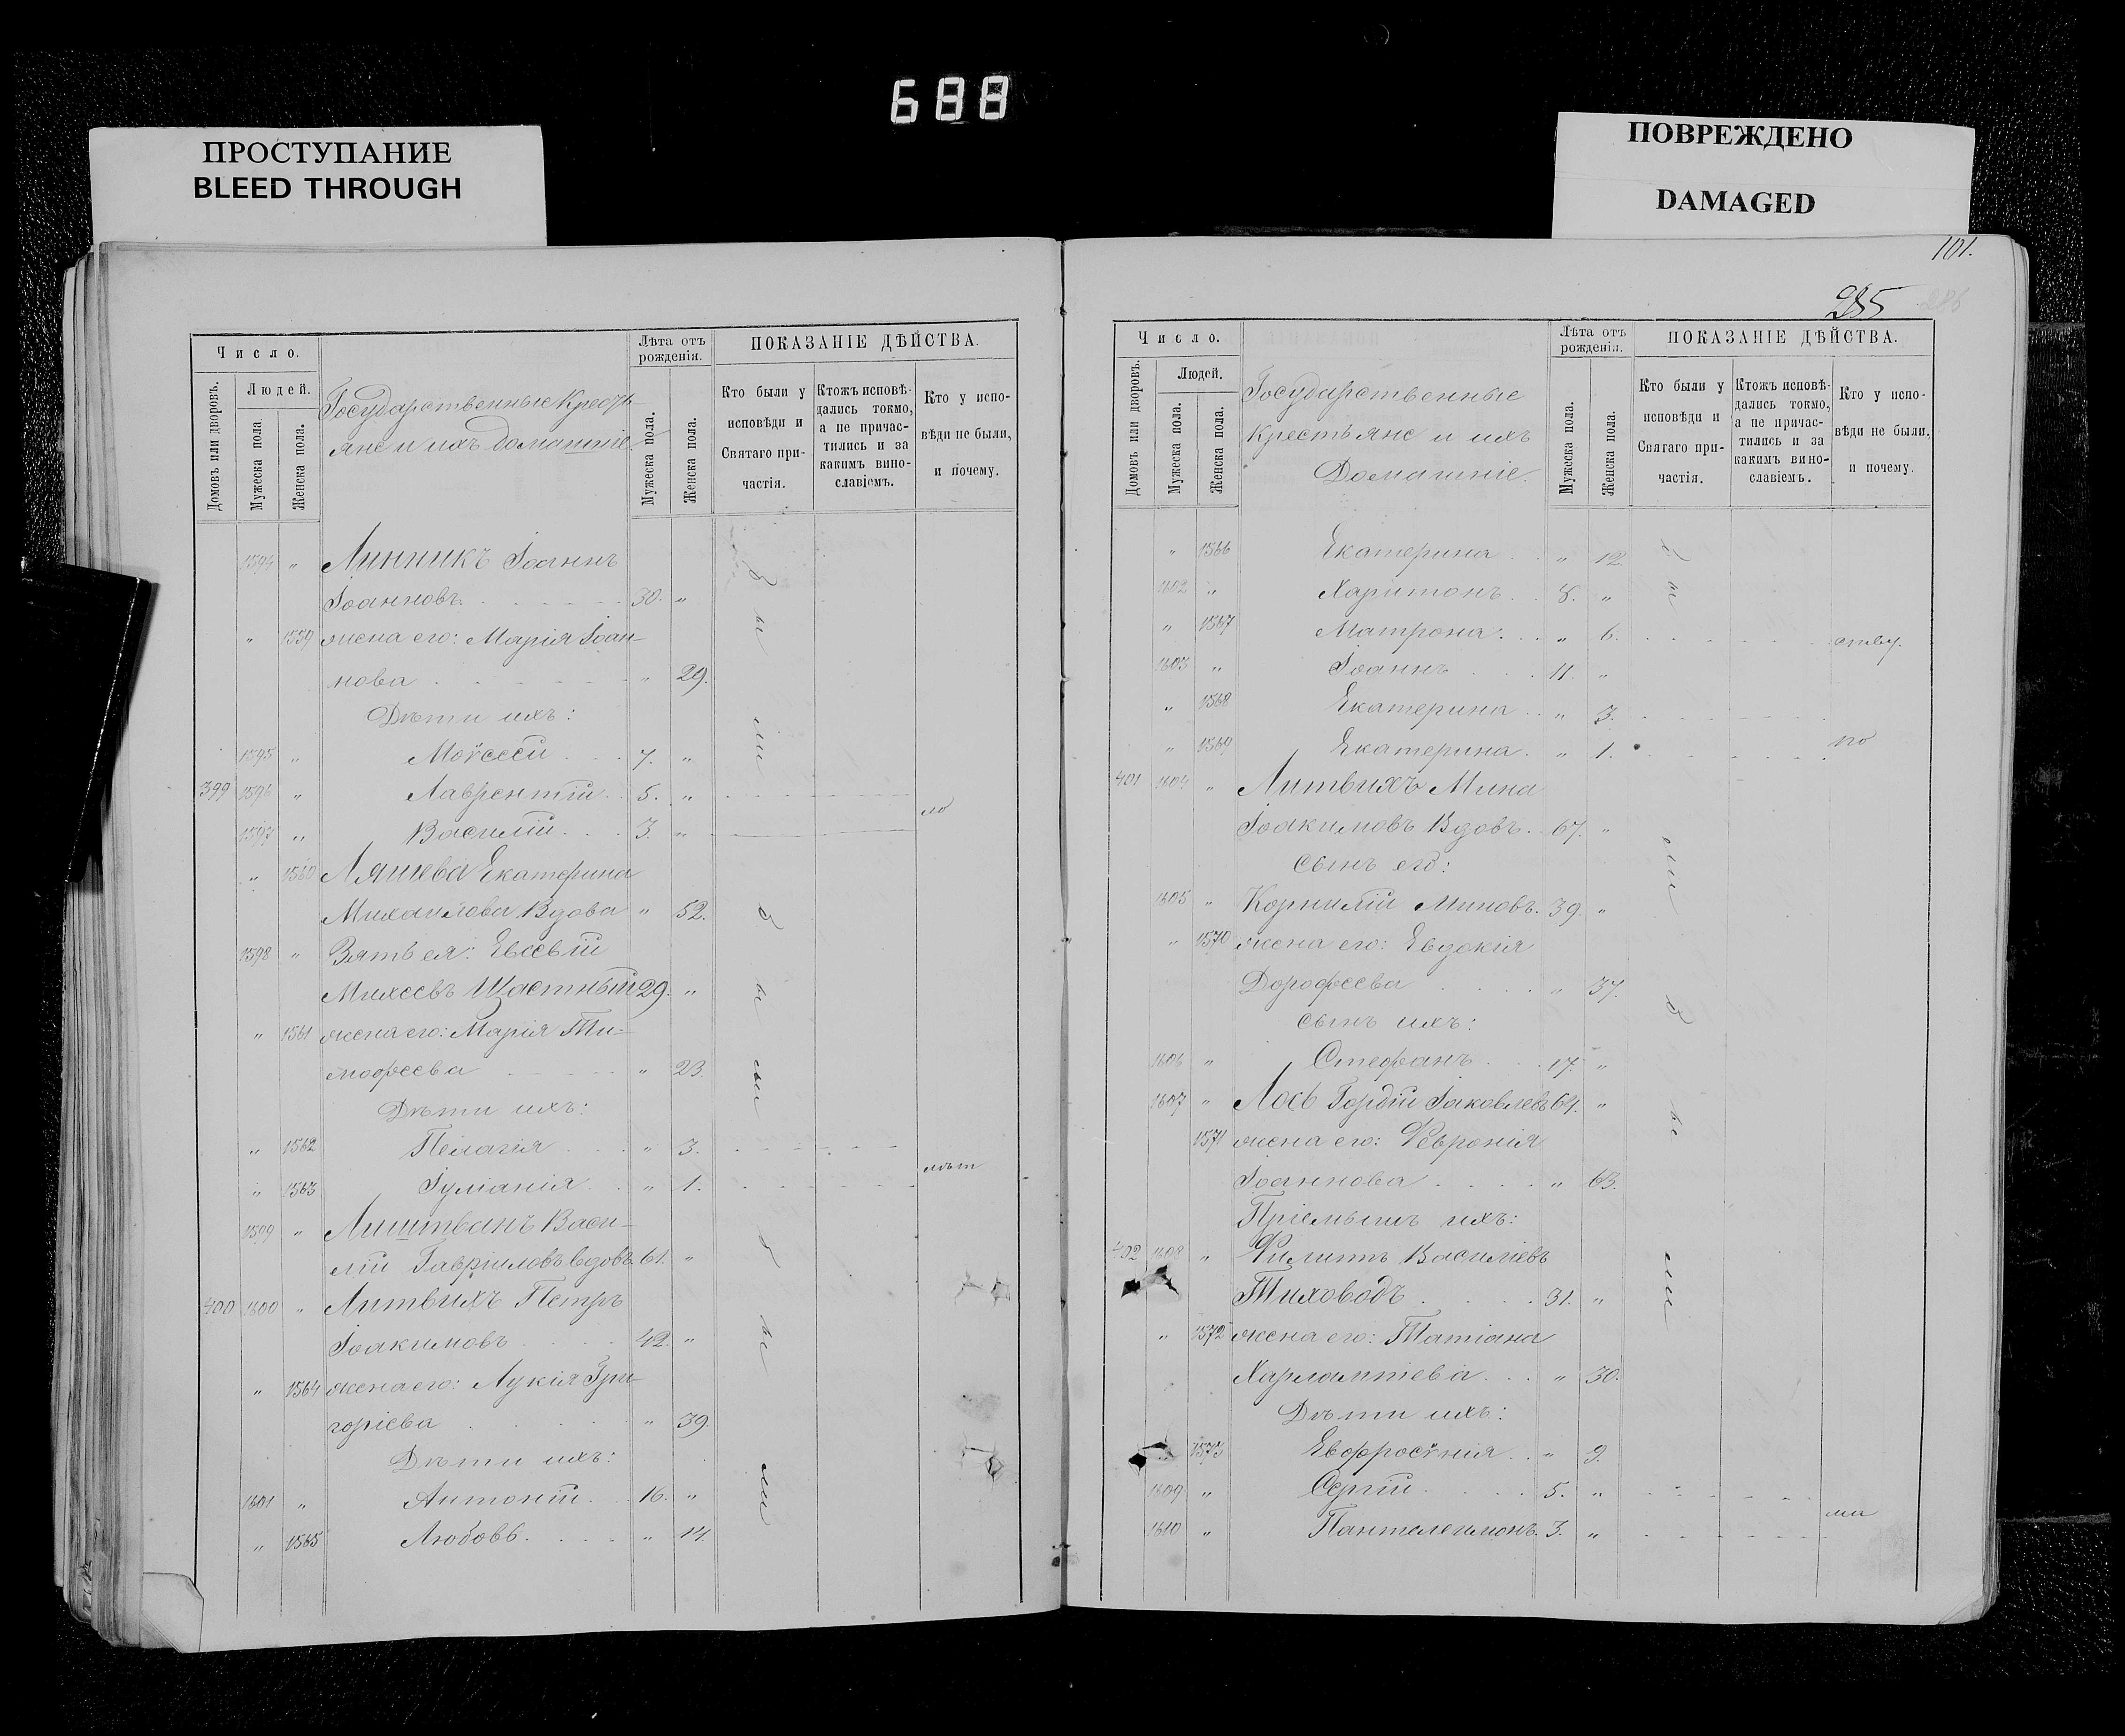 688
ПРОСТУПАНИЕ
BLEED THROUGH
ПОВРЕЖДЕНО
DAMAGED
Число.
Домовъ или дворовъ.
Людей.
Мужеска пола
Женска пола.
Государственные Кресть
яне и ихъ домашніе.
Лѣта отъ рожденія.
Мужеска пола.
Женска пола.
ПОКАЗАНІЕ ДѢЙСТВА.
Кто были у исповѣди и Святаго при-частія.
Ктожъ исповѣ-дались токмо, а не причас-тились и за какимъ вино-славіемъ.
Кто у испо-вѣди не были, и почему.
1594 " Линникъ Іоаннъ
Іоанновъ 30. "
" 1559 жена его: Марія Іоан-
нова " 29.
Дѣти ихъ:
1595 " Моѵсей 7. "
399 1596 " Лаврентій 5. "
1597 " Василій 3. " по
" 1560 Ляшева Екатерина
Михаилова Вдова " 52.
1598 " Зять ея: Евсевій
Михеевъ Щастный 29. "
" 1561 жена его: Марія Ти-
мофеева " 23.
Дѣти ихъ:
" 1562 Пелагія " 3.
" 1563 Іуліанія " 1.
1599 " Лиштванъ Васи-
лій Гавріиловъ вдовъ 61. "
400 1600 " Литвихъ Петръ
Іоакимовъ 42. "
" 1564 жена его: Лукія Гри-
горіева " 39.
Дѣти ихъ:
1601 " Антоній 16. "
" 1565 Любовь " 14.
101.
285
Число.
Домовъ или дворовъ.
Людей.
Мужеска пола.
Женска пола.
Государственные
Крестьяне и ихъ
Домашніе.
Лѣта отъ рожденія.
Мужеска пола.
Женска пола.
ПОКАЗАНІЕ ДѢЙСТВА.
Кто были у исповѣди и Святаго при-частія.
Ктожъ исповѣ-дались токмо, а не причас-тились и за какимъ вино-славіемъ.
Кто у испо-вѣди не были, и почему.
" 1566 Екатерина " 12.
1602 " Харитонъ 8. "
" 1567 Матрона " 6.
1603 " Іоаннъ 11. "
" 1568 Екатерина " 3.
" 1569 Екатерина " 1. по
401 1604 " Литвихъ Мина
Іоакимовъ Вдовъ 67. "
сынъ его:
1605 " Корнилій Миновъ 39. "
" 1570 жена его: Евдокія
Дорофеева " 37.
сынъ ихъ:
1606 " Стефанъ 17. "
1607 " Лось Гордій Іаковлевъ 64. "
1571 жена его: Февронія
Іоаннова " 63.
Пріемышъ ихъ:
402 1608 " Филиппъ Василіевъ
Тиховодъ 31. "
" 1572 жена его: Татіана
Харлампіева " 30.
Дѣти ихъ:
1573 Евфросѵнія " 9.
1609 " Сергій 5. "
1610 " Пантелеимонъ 3. "